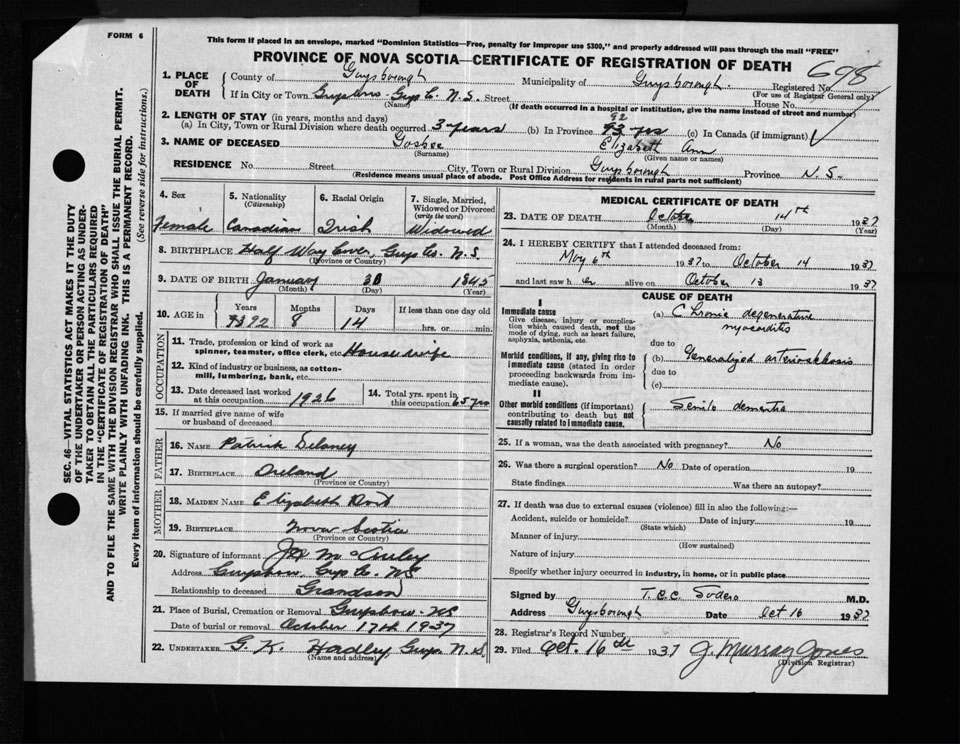 FORM 6
This form if placed in an envelope, marked "Dominion Statistics—Free, penalty for improper use $300," and properly addressed will pass through the mail "FREE"
PROVINCE OF NOVA SCOTIA—CERTIFICATE OF REGISTRATION OF DEATH
698
1. PLACE OF DEATH
County of Guysborough Municipality of Guysborough Registered No.
(For use of Registrar General only)
If in City or Town Guysboro Guys Co. N.S. Street House No.
(Name) (If death occurred in a hospital or institution, give the name instead of street and number)
2. LENGTH OF STAY (in years, months and days)
92
(a) In City, Town or Rural Division where death occurred 3 years (b) In Province 93 yrs (c) In Canada (if immigrant)
3. NAME OF DECEASED Gosbee Elizabeth Ann
(Surname) (Given name or names)
RESIDENCE No. Street City, Town or Rural Division Guysborough Province N.S.
(Residence means usual place of abode. Post Office Address for residents in rural parts not sufficient)
4. Sex
Female
5. Nationality
(Citizenship)
Canadian
6. Racial Origin
Irish
7. Single, Married, Widowed or Divorced
(write the word)
Widowed
8. BIRTHPLACE Half Way Cove, Guys Co. N.S.
(Province or Country)
9. DATE OF BIRTH January 30 1845
(Month) (Day) (Year)
10. AGE in Years Months Days If less than one day old
93 92 8 14 hrs. or min.
OCCUPATION
11. Trade, profession or kind of work as spinner, teamster, office clerk, etc. Housewife
12. Kind of industry or business, as cotton-mill, lumbering, bank, etc.
13. Date deceased last worked at this occupation 1926
14. Total yrs. spent in this occupation 65 yrs
15. If married give name of wife or husband of deceased
FATHER
16. NAME Patrick Delaney
17. BIRTHPLACE Ireland
(Province or Country)
MOTHER
18. MAIDEN NAME Elizabeth
19. BIRTHPLACE Nova Scotia
(Province or Country)
20. Signature of informant
Address Guysboro, Guys Co. NS
Relationship to deceased Grandson
21. Place of Burial, Cremation or Removal Guysboro NS
Date of burial or removal October 17th 1937
22. UNDERTAKER G. K. Hadley, Guys. N.S.
(Name and address)
MEDICAL CERTIFICATE OF DEATH
23. DATE OF DEATH October 14th 1937
(Month) (Day) (Year)
24. I HEREBY CERTIFY that I attended deceased from:
May 6th 1937 to October 14 1937
and last saw her alive on October 13 1937
CAUSE OF DEATH
I
Immediate cause
Give disease, injury or complication which caused death, not the mode of dying, such as heart failure, asphyxia, asthenia, etc.
(a) Chronic degenerative myocarditis
due to
Morbid conditions, if any, giving rise to immediate cause (stated in order proceeding backwards from immediate cause).
(b) Generalized arteriosclerosis
due to
(c)
II
Other morbid conditions (if important) contributing to death but not causally related to immediate cause.
Senile dementia
25. If a woman, was the death associated with pregnancy? No
26. Was there a surgical operation? No Date of operation 19
State findings Was there an autopsy?
27. If death was due to external causes (violence) fill in also the following:—
Accident, suicide or homicide? Date of injury 19
(State which)
Manner of injury
(How sustained)
Nature of injury
Specify whether injury occurred in industry, in home, or in public place
Signed by T.C.C. Sodero M.D.
Address Guysborough Date Oct 16 1937
28. Registrar's Record Number
29. Filed Oct. 16th 1937 J. Murray Jones
(Division Registrar)
SEC. 46—VITAL STATISTICS ACT MAKES IT THE DUTY
OF THE UNDERTAKER OR PERSON ACTING AS UNDER-
TAKER TO OBTAIN ALL THE PARTICULARS REQUIRED
IN THE "CERTIFICATE OF REGISTRATION OF DEATH"
AND TO FILE THE SAME WITH THE DIVISION REGISTRAR WHO SHALL ISSUE THE BURIAL PERMIT.
WRITE PLAINLY WITH UNFADING INK. THIS IS A PERMANENT RECORD.
Every item of information should be carefully supplied. (See reverse side for instructions.)